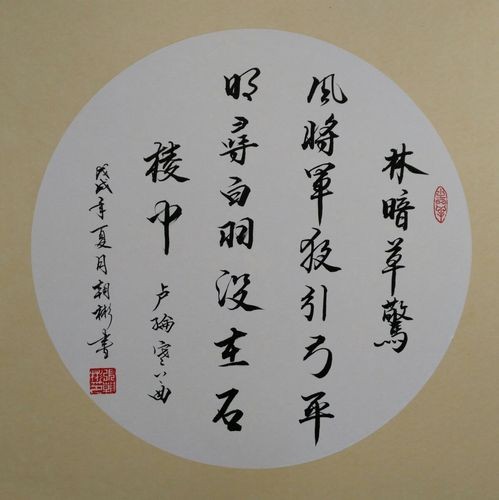 林暗草驚
风將軍夜引弓平
明尋白羽没在石
棱中
卢綸塞下曲
戊戌年夏月朝彬書